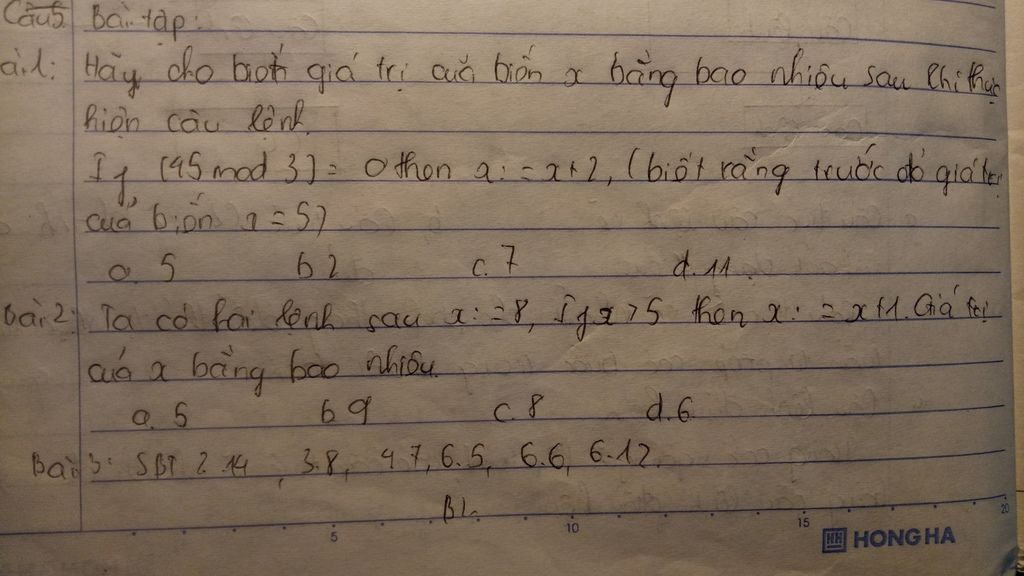 Câu5 Bài tập:
ài1: Hãy cho biết giá trị của biến x bằng bao nhiêu sau khi thực
hiện câu lệnh.
If (45 mod 3) = 0 then x: = x+2, (biết rằng trước đó giá trị
của biến x = 5)
a. 5 b 2 c. 7 d. 11.
Bài 2: Ta có hai lệnh sau x: = 8, If x > 5 then x: = x+1. Giá trị
của x bằng bao nhiêu.
a. 5 b 9 c. 8 d. 6
Bài 3: SBT 2.14, 3.8, 4.7, 6.5, 6.6, 6.12.
BL
5 10 15 20
HH HONG HA